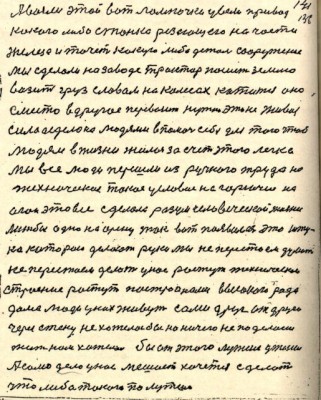 141
138
этой вот
какого либо станка режущего на части
железо и точет какую либо деталь сооружение
мы сделали на заводе трактор пошит землю
возит груз словам на колесах катится оно
с место в другое перевозит нужн это не живая
сила сделана людями в помоч себя для того чтоб
людям в жизни жилося за счет этого легко
мы все люди перешли из ручного труда на
техническое такое условие
это все сделала разум человеческой жизни
одно на одну так вот появилась это шту
ка которою делают руки мы не перестаем думать
не перестаем делать у нас растут технически
строение растут построенами высокого рода
дома люди у них живут сами друг от друга
через стену не хотелось бы но ничего не поделаеш
жить нам хочется бы от этого лучше
А само дело у нас мешает хочется сделать
что либо такого получше